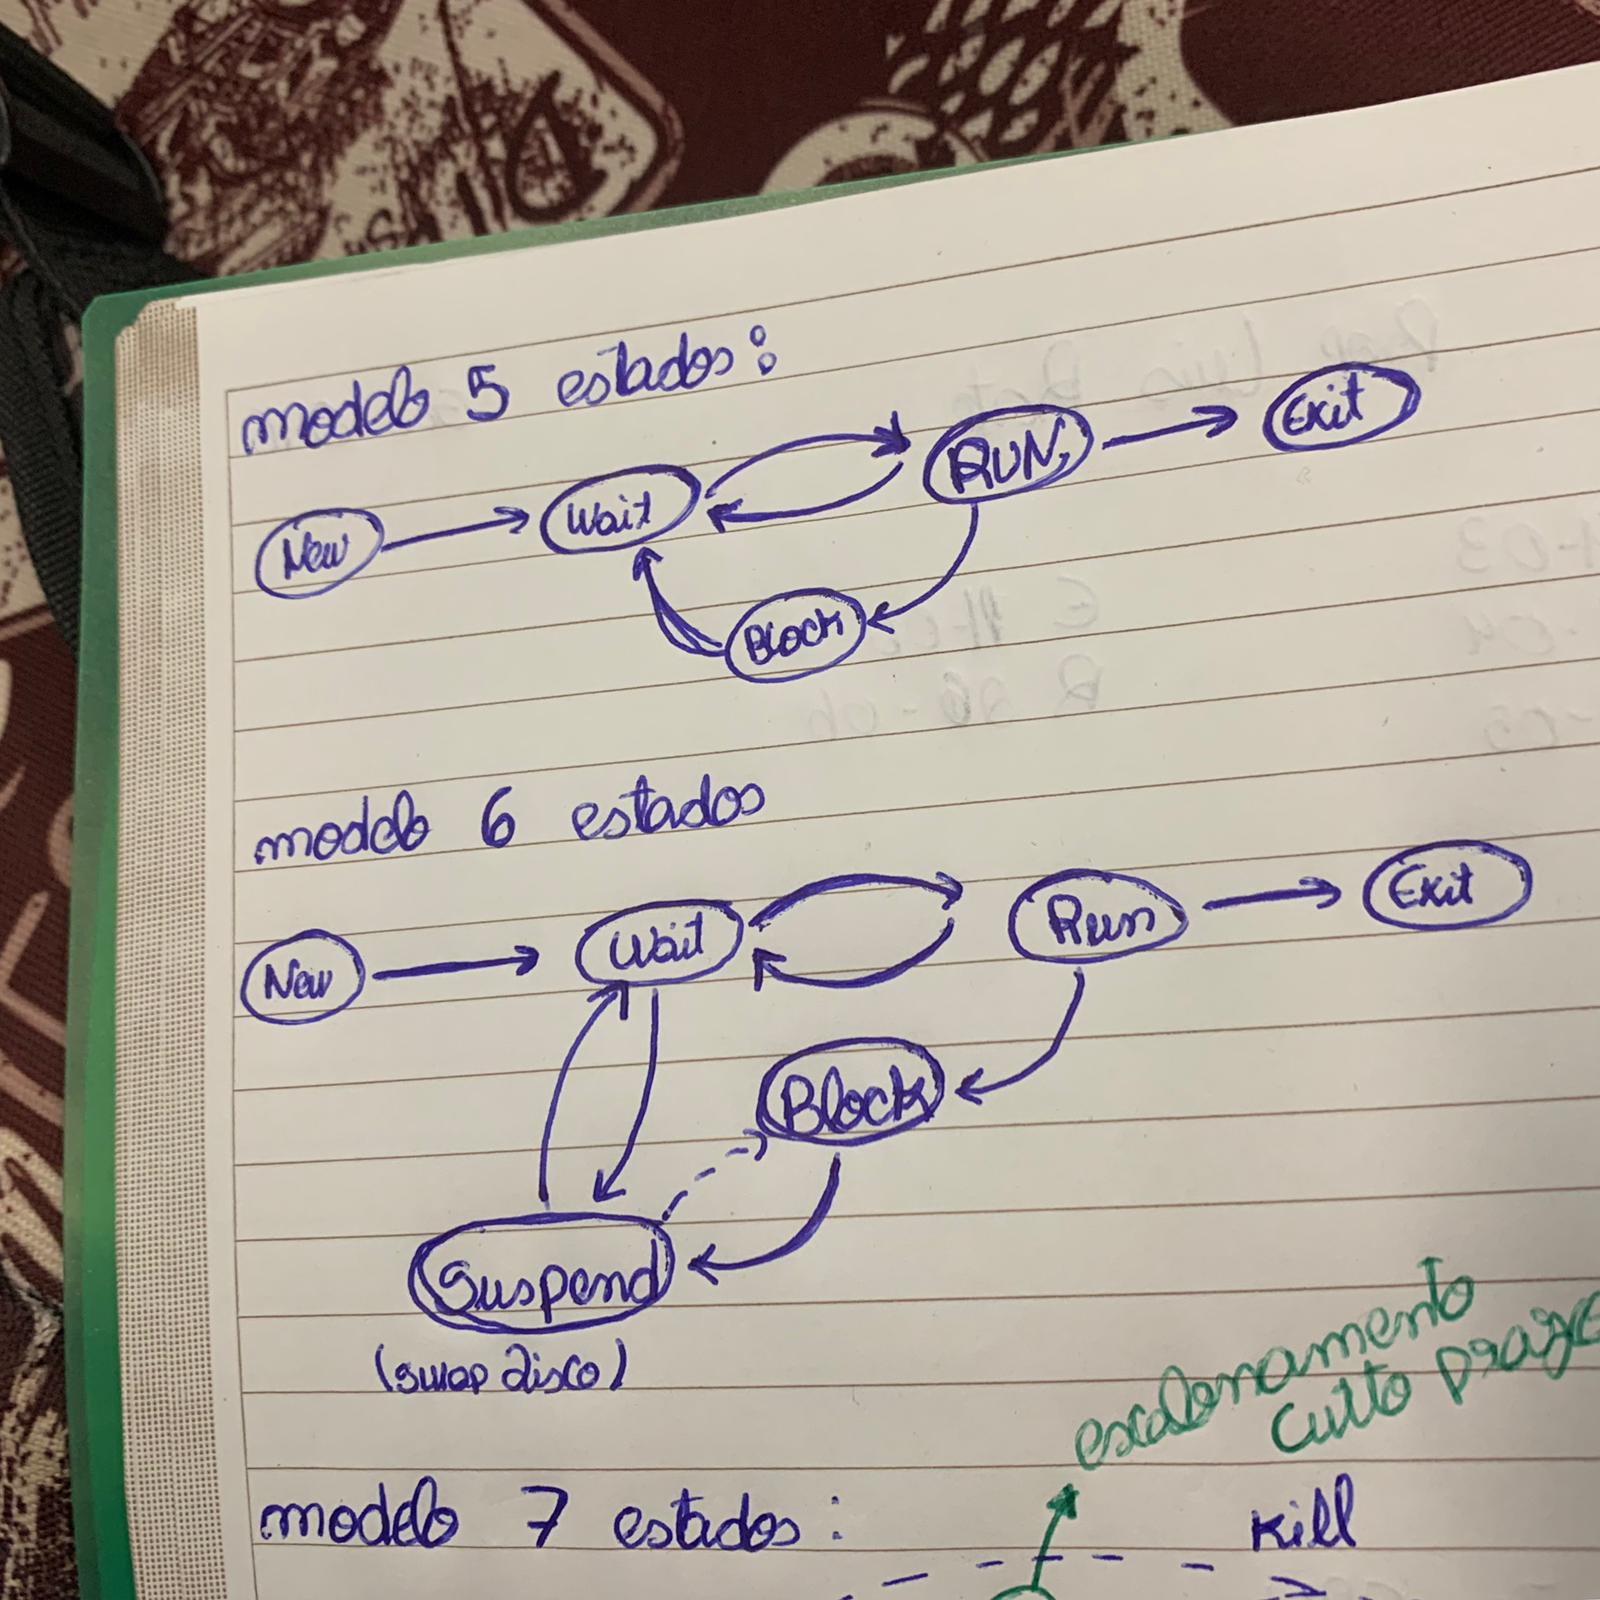 modelo 5 estados:
New
Wait
RUN
Exit
Block
modelo 6 estados
New
Wait
Run
Exit
Block
Suspend
(swap disco)
escalonamento
curto prazo
modelo 7 estados:
Kill